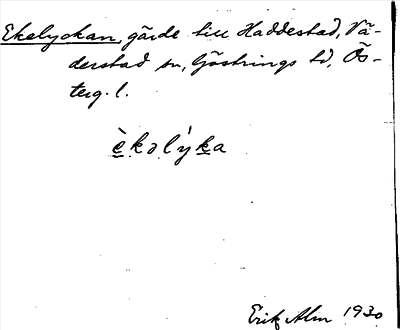 Ekelyckan, gärde till Haddestad, Vä-
derstad sn, Göstrings hd, Ös-
terg. l.
èkəlýka
Erik Alm 1930